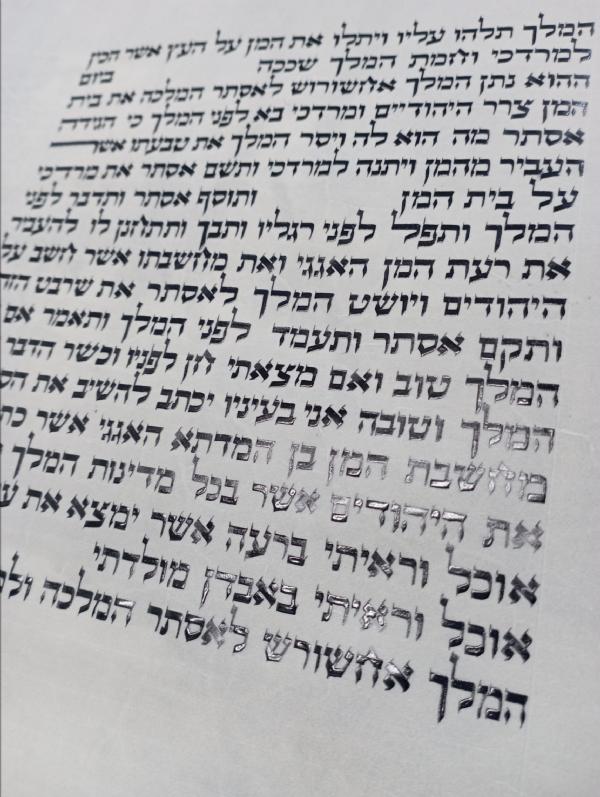 המלך תלהו עליו ויתלו את המן על העץ אשר הכין
למרדכי וחמת המלך שככה ביום
ההוא נתן המלך אחשורוש לאסתר המלכה את בית
המן צרר היהודיים ומרדכי בא לפני המלך כי הגידה
אסתר מה הוא לה ויסר המלך את טבעתו אשר
העביר מהמן ויתנה למרדכי ותשם אסתר את מרדכי
על בית המן ותוסף אסתר ותדבר לפני
המלך ותפל לפני רגליו ותבך ותתחנן לו להעביר
את רעת המן האגגי ואת מחשבתו אשר חשב על
היהודים ויושט המלך לאסתר את שרבט הזה
ותקם אסתר ותעמד לפני המלך ותאמר אם
המלך טוב ואם מצאתי חן לפניו וכשר הדבר
המלך וטובה אני בעיניו יכתב להשיב את הס
מחשבת המן בן המדתא האגגי אשר כת
את היהודים אשר בכל מדינות המלך
אוכל וראיתי ברעה אשר ימצא את ע
אוכל וראיתי באבדן מולדתי
המלך אחשורש לאסתר המלכה ול